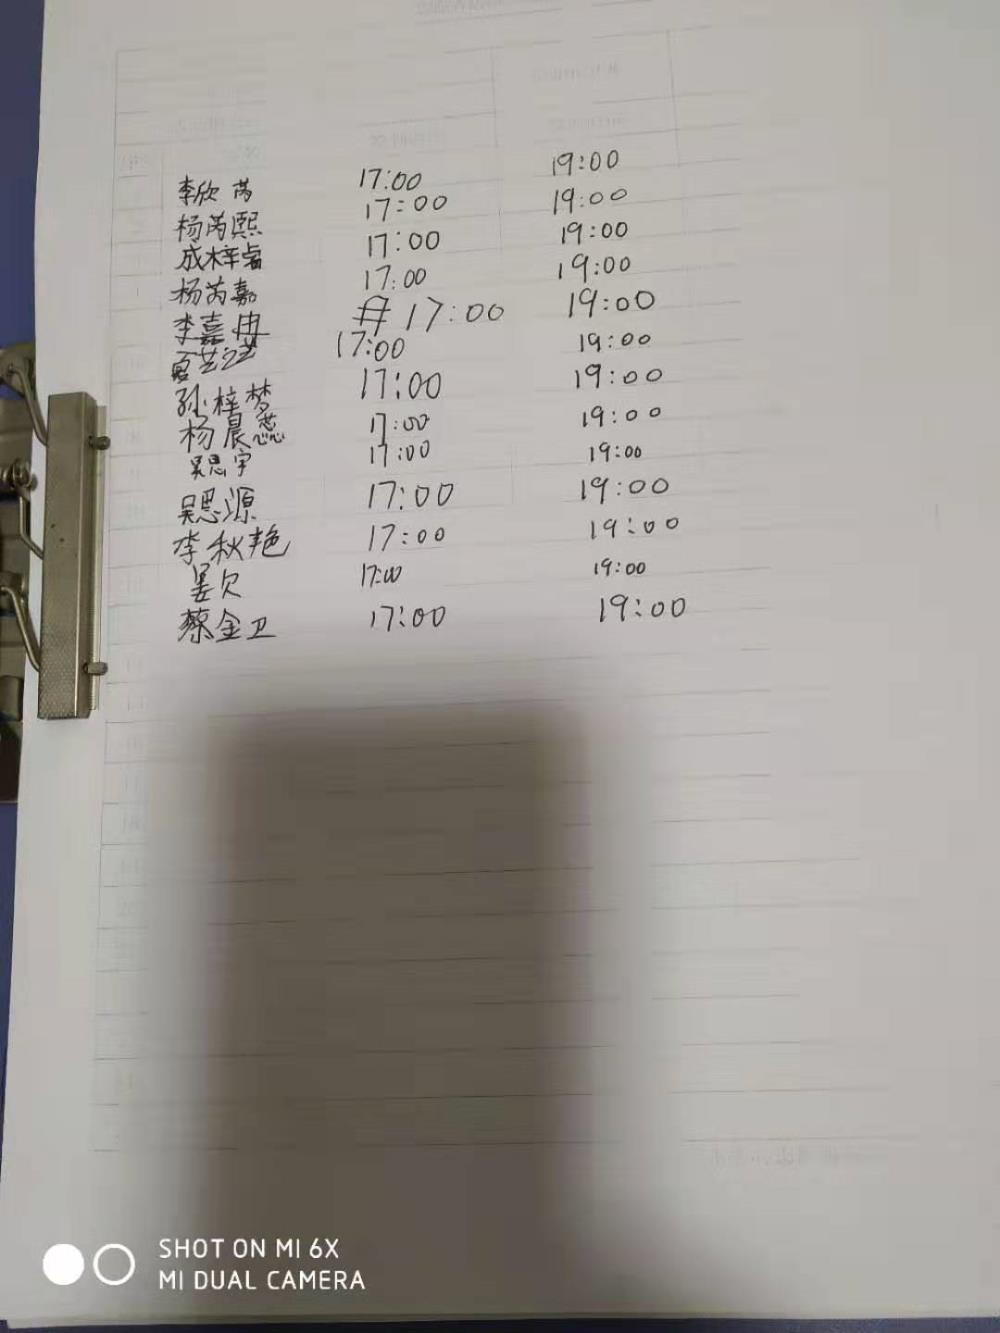 李欣芮 17:00 19:00
杨芮熙 17:00 19:00
成梓睿 17:00 19:00
杨芮嘉 17:00 19:00
李嘉冉 17:00 19:00
17:00 19:00
孙梓梦 17:00 19:00
杨晨蕊 17:00 19:00
吴思宇 17:00 19:00
吴思源 17:00 19:00
李秋艳 17:00 19:00
17:00 19:00
蔡金卫 17:00 19:00
SHOT ON MI 6X
MI DUAL CAMERA